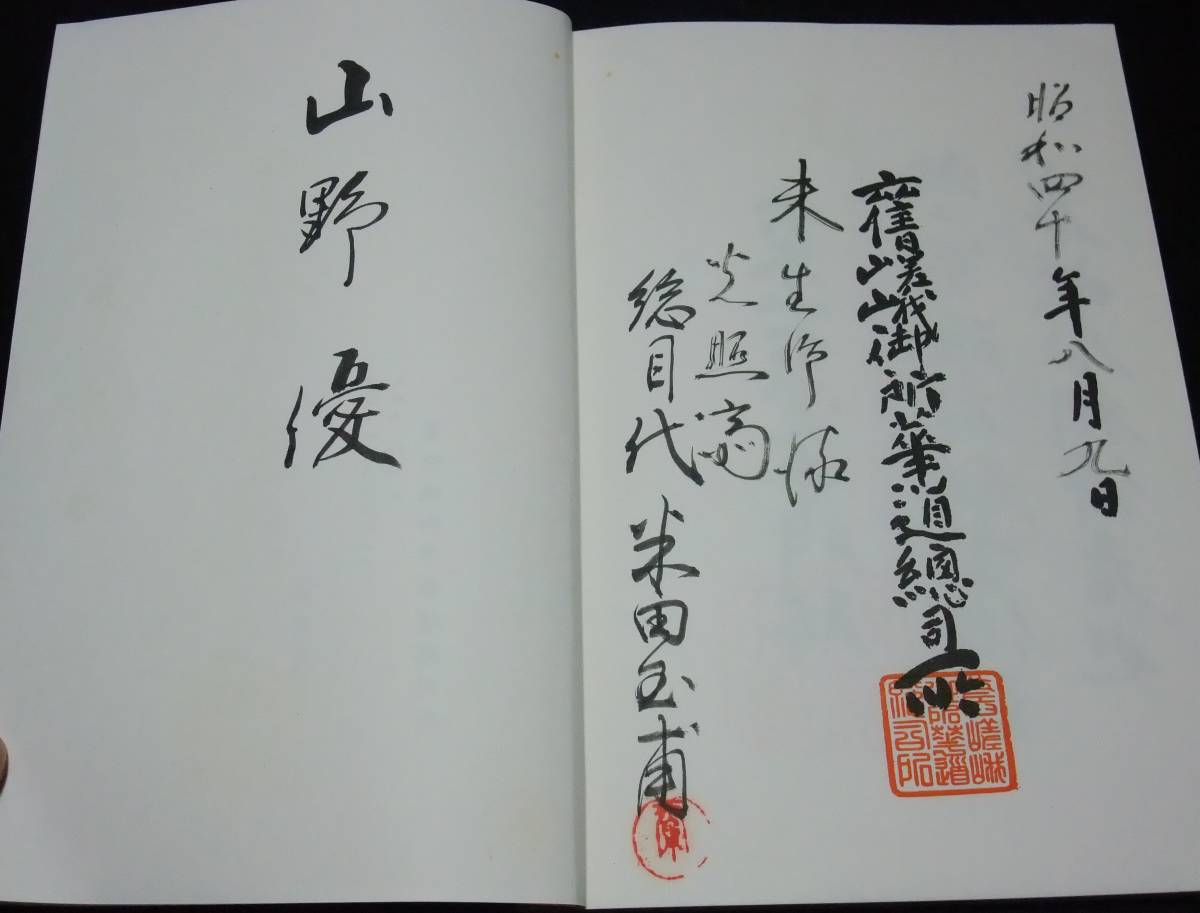 昭和四十年八月九日
舊嵯峨御所華道總司所
未生御流
総目代 米田玉甫
山野優